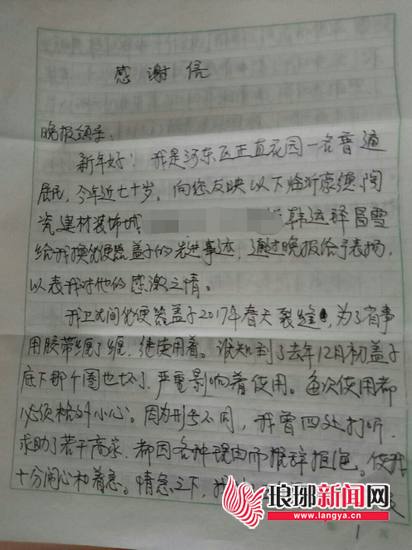 感谢信
晚报领导:
新年好!我是河东区正直花园一名普通
居民,今年近七十岁,向您反映以下临沂康德陶
瓷建材装饰城 韩运铎冒雪
给我换坐便器盖子的先进事迹,通过晚报给予表扬,
以表我对他的感激之情。
我卫生间坐便器盖子2017年春天裂缝,为了省事
用胶带缠了缠,继续用着。谁知到了去年12月初盖子
底下那个圈也坏了,严重影响着使用。每次使用都
必须格外小心。因为型号不同,我曾四处打听,
求助了若干商家,都因各种理由而推辞拒绝。使我
十分闹心和着急。情急之下,我
琅琊新闻网
www.langya.cn
1